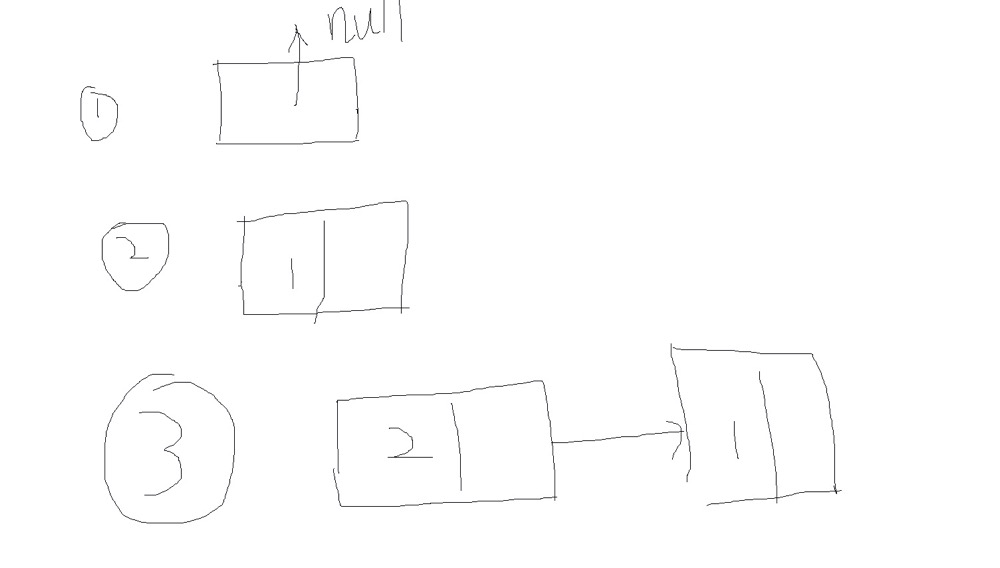 null
1
2
1
3
2
1